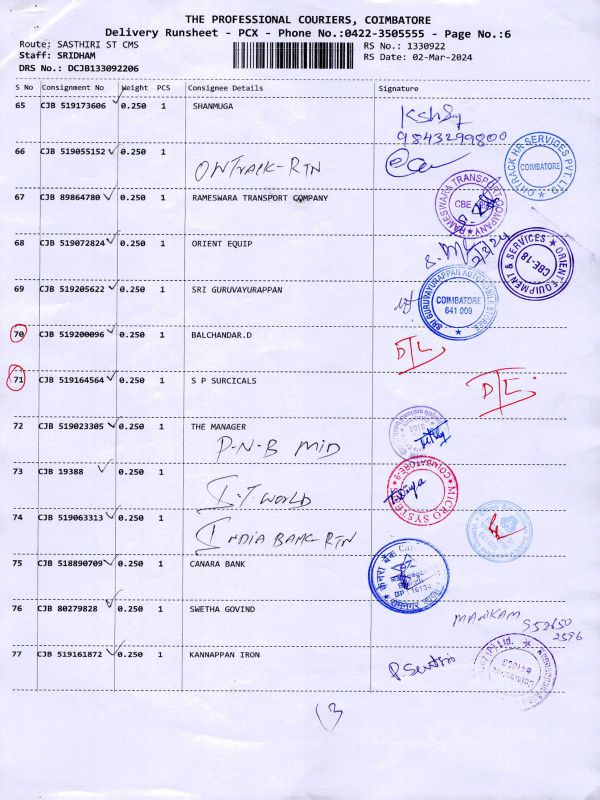 THE PROFESSIONAL COURIERS, COIMBATORE
Delivery Runsheet - PCX - Phone No.:0422-3505555 - Page No.:6
Route: SASTHIRI ST CMS
RS No.: 1330922
Staff: SRIDHAM
RS Date: 02-Mar-2024
DRS No.: DCJB133092206
S No Consignment No Weight PCS Consignee Details Signature
65 CJB 519173606 0.250 1 SHANMUGA
9843299800
66 CJB 519055152 0.250 1
ONTRACK-RTN
ONTRACK HR SERVICES PVT. LTD
COIMBATORE
67 CJB 89864780 0.250 1 RAMESWARA TRANSPORT COMPANY
RAMESWARA TRANSPORT COMPANY
CBE
68 CJB 519072824 0.250 1 ORIENT EQUIP
2/3/24
ORIENT EQUIPMENT & SERVICES
CBE-18
69 CJB 519205622 0.250 1 SRI GURUVAYURAPPAN
COIMBATORE
641 009
70 CJB 519200096 0.250 1 BALCHANDAR.D
D/L
71 CJB 519164564 0.250 1 S P SURCICALS
D/L
72 CJB 519023305 0.250 1 THE MANAGER
P-N-B MID
73 CJB 19388 0.250 1
I.T. WORLD
MICRO SYSTEMS
COIMBATORE-9
74 CJB 519063313 0.250 1
INDIA BANK-RTN
75 CJB 518890709 0.250 1 CANARA BANK
केनरा बैंक
76 CJB 80279828 0.250 1 SWETHA GOVIND
MANIKAM
77 CJB 519161872 0.250 1 KANNAPPAN IRON
13